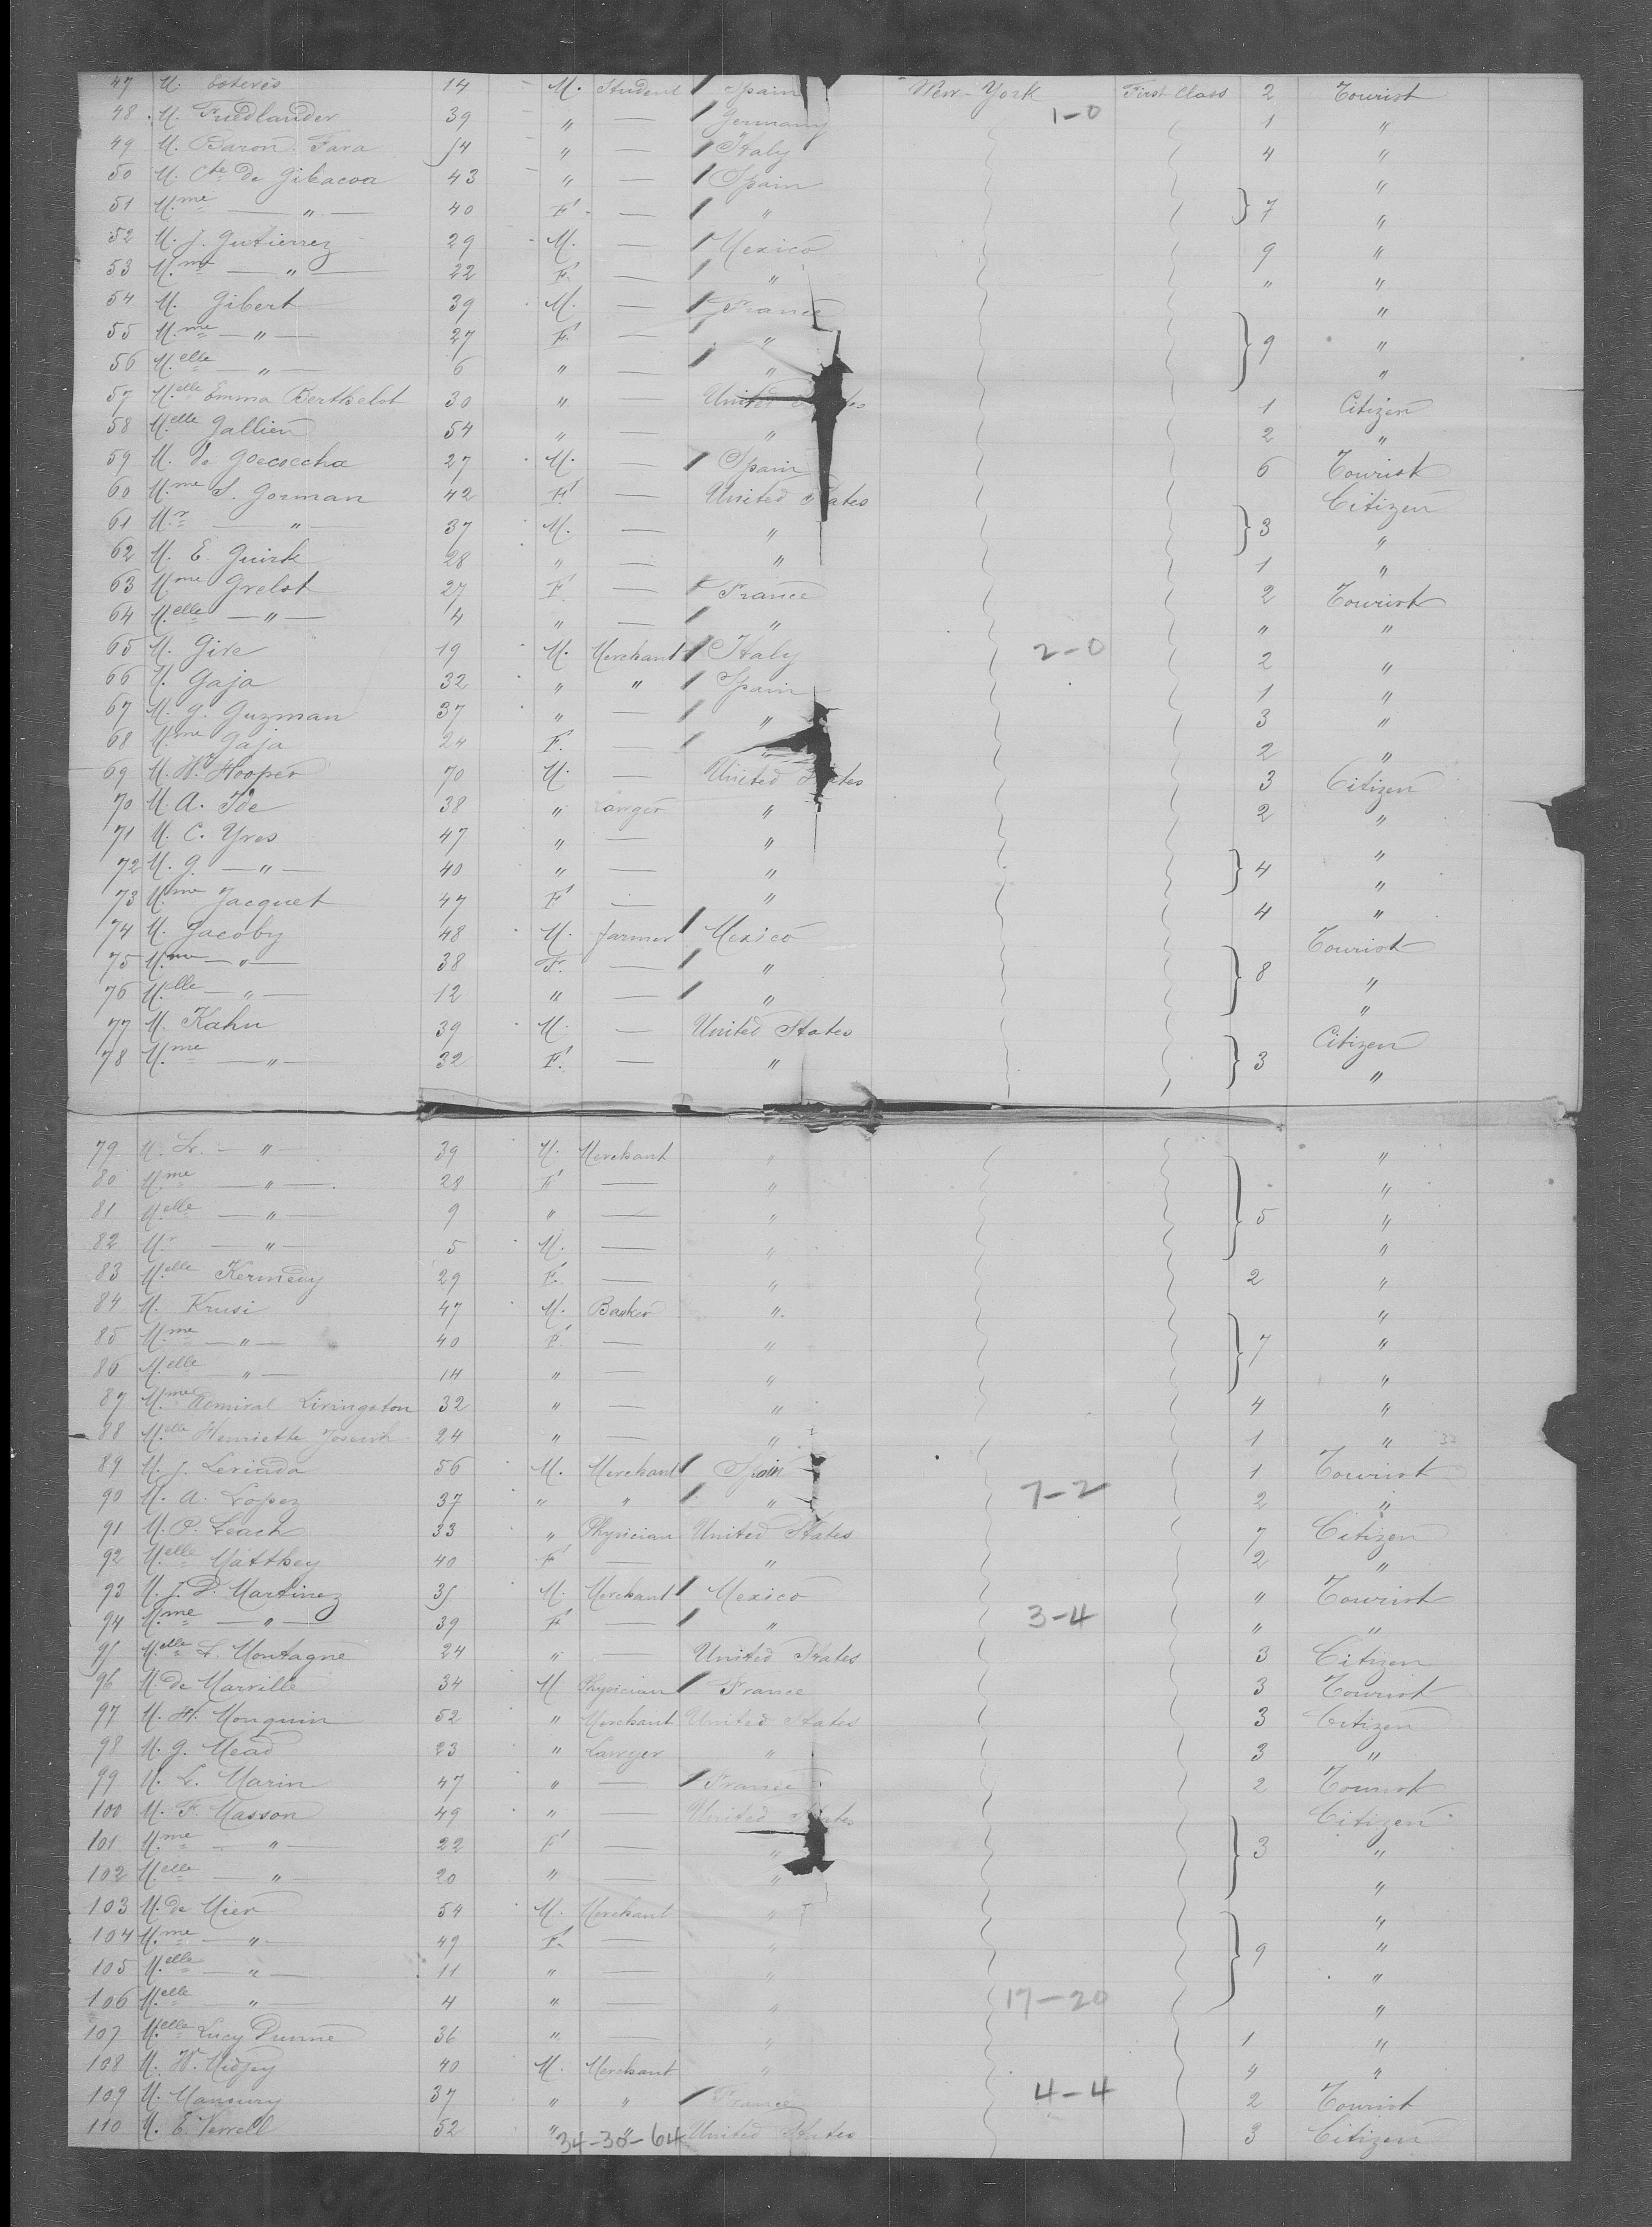 47 M. Esteves 14 M. Student Spain New-York First Class 2 Tourist
48 M. Friedlander 39 " — Germany 1-0 1 "
49 M. Baron Fava 54 " — Italy 4 "
50 M. Cte de Gibacoa 43 " — Spain "
51 Mme — " — 40 F. — " } 7 "
52 M. J. Gutierrez 29 M. — Mexico 9 "
53 Mme — " — 22 F. — " " "
54 M. Gibert 39 M. — France "
55 Mme — " — 27 F. — " } 9 "
56 Melle — " — 6 " — " "
57 Melle Emma Berthelot 30 " — United States 1 Citizen
58 Melle Gallien 54 " — " 2 "
59 M. de Goecoecha 27 M. — Spain 6 Tourist
60 Mme S. Gorman 42 F. — United States Citizen
61 Mr — " — 37 M. — " } 3 "
62 M. E. Guirk 28 " — " 1 "
63 Mme Grelot 27 F. — France 2 Tourist
64 Melle — " — 4 " — " " "
65 M. Give 19 M. Merchant Italy 2-0 2 "
66 M. Gaja 32 " " Spain 1 "
67 M. G. Guzman 37 " — " 3 "
68 Mme Gaja 24 F. — " 2 "
69 M. H. Hooper 70 M. — United States 3 Citizen
70 M. A. Ide 38 " Lawyer " 2 "
71 M. C. Yves 47 " — " "
72 M. G. — " — 40 " — " } 4 "
73 Mme Jacquet 47 F — " 4 "
74 M. Jacoby 48 M. Farmer Mexico Tourist
75 Mme — " — 38 F. — " } 8 "
76 Melle — " — 12 " — " "
77 M. Kahn 39 M. — United States Citizen
78 Mme — " — 32 F. — " } 3 "
79 M. L. — " — 39 M. Merchant " "
80 Mme — " — 28 F — " "
81 Melle — " — 9 " — " } 5 "
82 Mr — " — 5 M. — " "
83 Melle Kermedy 29 F. — " 2 "
84 M. Krusi 47 M. Banker " "
85 Mme — " — 40 F. — " } 7 "
86 Melle — " — 14 " — " "
87 Mme Admiral Livingston 32 " — " 4 "
88 Melle Henriette 24 " — " 1 "
89 M. J. Leriada 56 M. Merchant Spain 1 Tourist
90 M. A. Lopez 37 " " " 7-2 2 "
91 M. P. Leach 33 " Physician United States 7 Citizen
92 Melle Matthey 40 F — " 2 "
93 M. J. D. Martinez 35 M. Merchant Mexico " Tourist
94 Mme — " — 39 F — " 3-4 " "
95 Melle L. Montagne 24 " — United States 3 Citizen
96 M. de Marville 34 M Physician France 3 Tourist
97 M. H. Mouquin 52 " Merchant United States 3 Citizen
98 M. G. Mead 23 " Lawyer " 3 "
99 M. L. Marin 47 " — France 2 Tourist
100 M. F. Masson 49 " — United States Citizen
101 Mme — " — 22 F — " } 3 "
102 Melle — " — 20 " — " "
103 M. de Mier 54 M. Merchant " "
104 Mme — " — 49 F. — " } 9 "
105 Melle — " — 11 " — " "
106 Melle — " — 4 " — " 17-20 "
107 Melle Lucy Dunne 36 " — " 1 "
108 M. W. 40 M. Merchant " 4 "
109 M. Manoury 37 " " France 4-4 2 Tourist
110 M. E. Verrell 52 " " 34-30-64 United States 3 Citizen